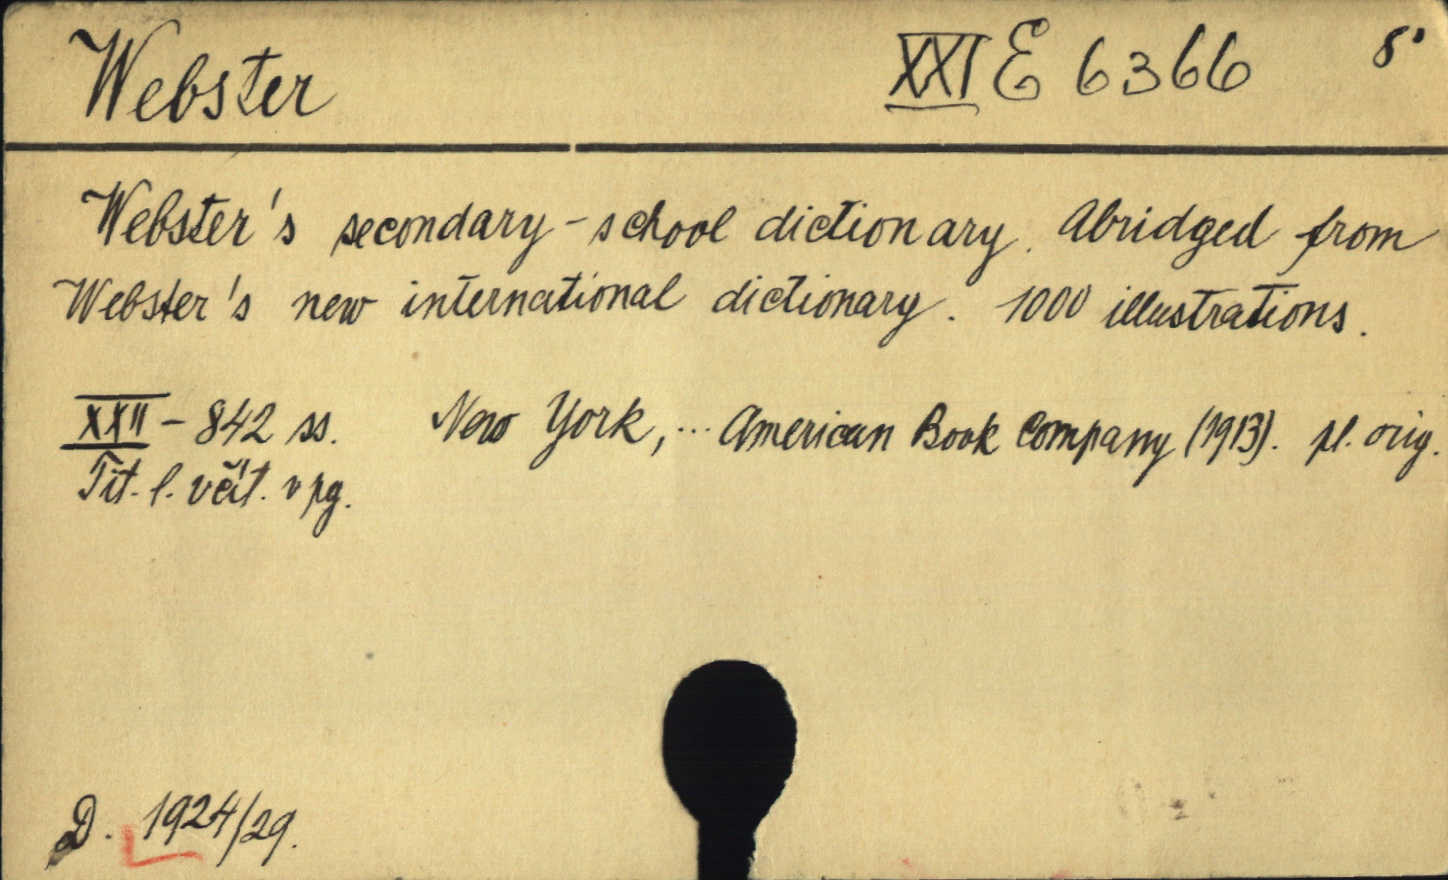 Webster XXI E 6366 8°
Webster's secondary-school dictionary. Abridged from
Webster's new international dictionary. 1000 illustrations.
XXII - 842 ss. New York, ... American Book Company (1913). pl. orig.
Tit. l. včít. v pg.
D. 1924/29.